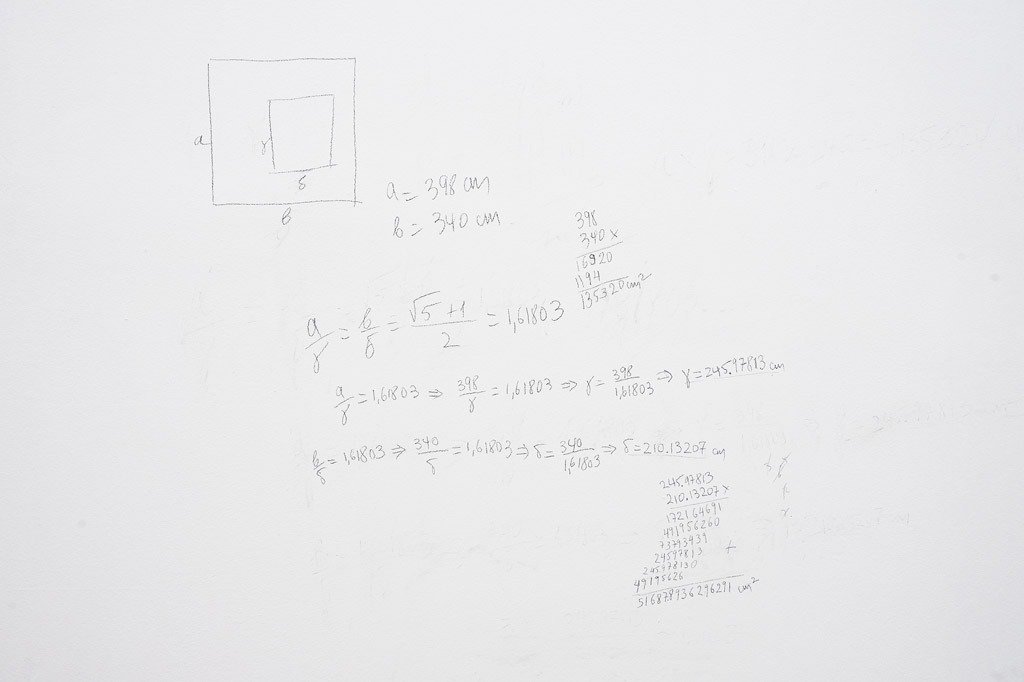 a
γ
δ
β
a = 398 cm
β = 340 cm
398
340 x
16920
1194
135320 cm²
a/γ = β/δ = (√5 + 1)/2 = 1,61803
a/γ = 1,61803 ⇒ 398/γ = 1,61803 ⇒ γ = 398/1,61803 ⇒ γ = 245.97813 cm
β/δ = 1,61803 ⇒ 340/δ = 1,61803 ⇒ δ = 340/1,61803 ⇒ δ = 210.13207 cm
245.97813
210.13207 x
172164691
491956260
73793439
24597813 +
245978130
49195626